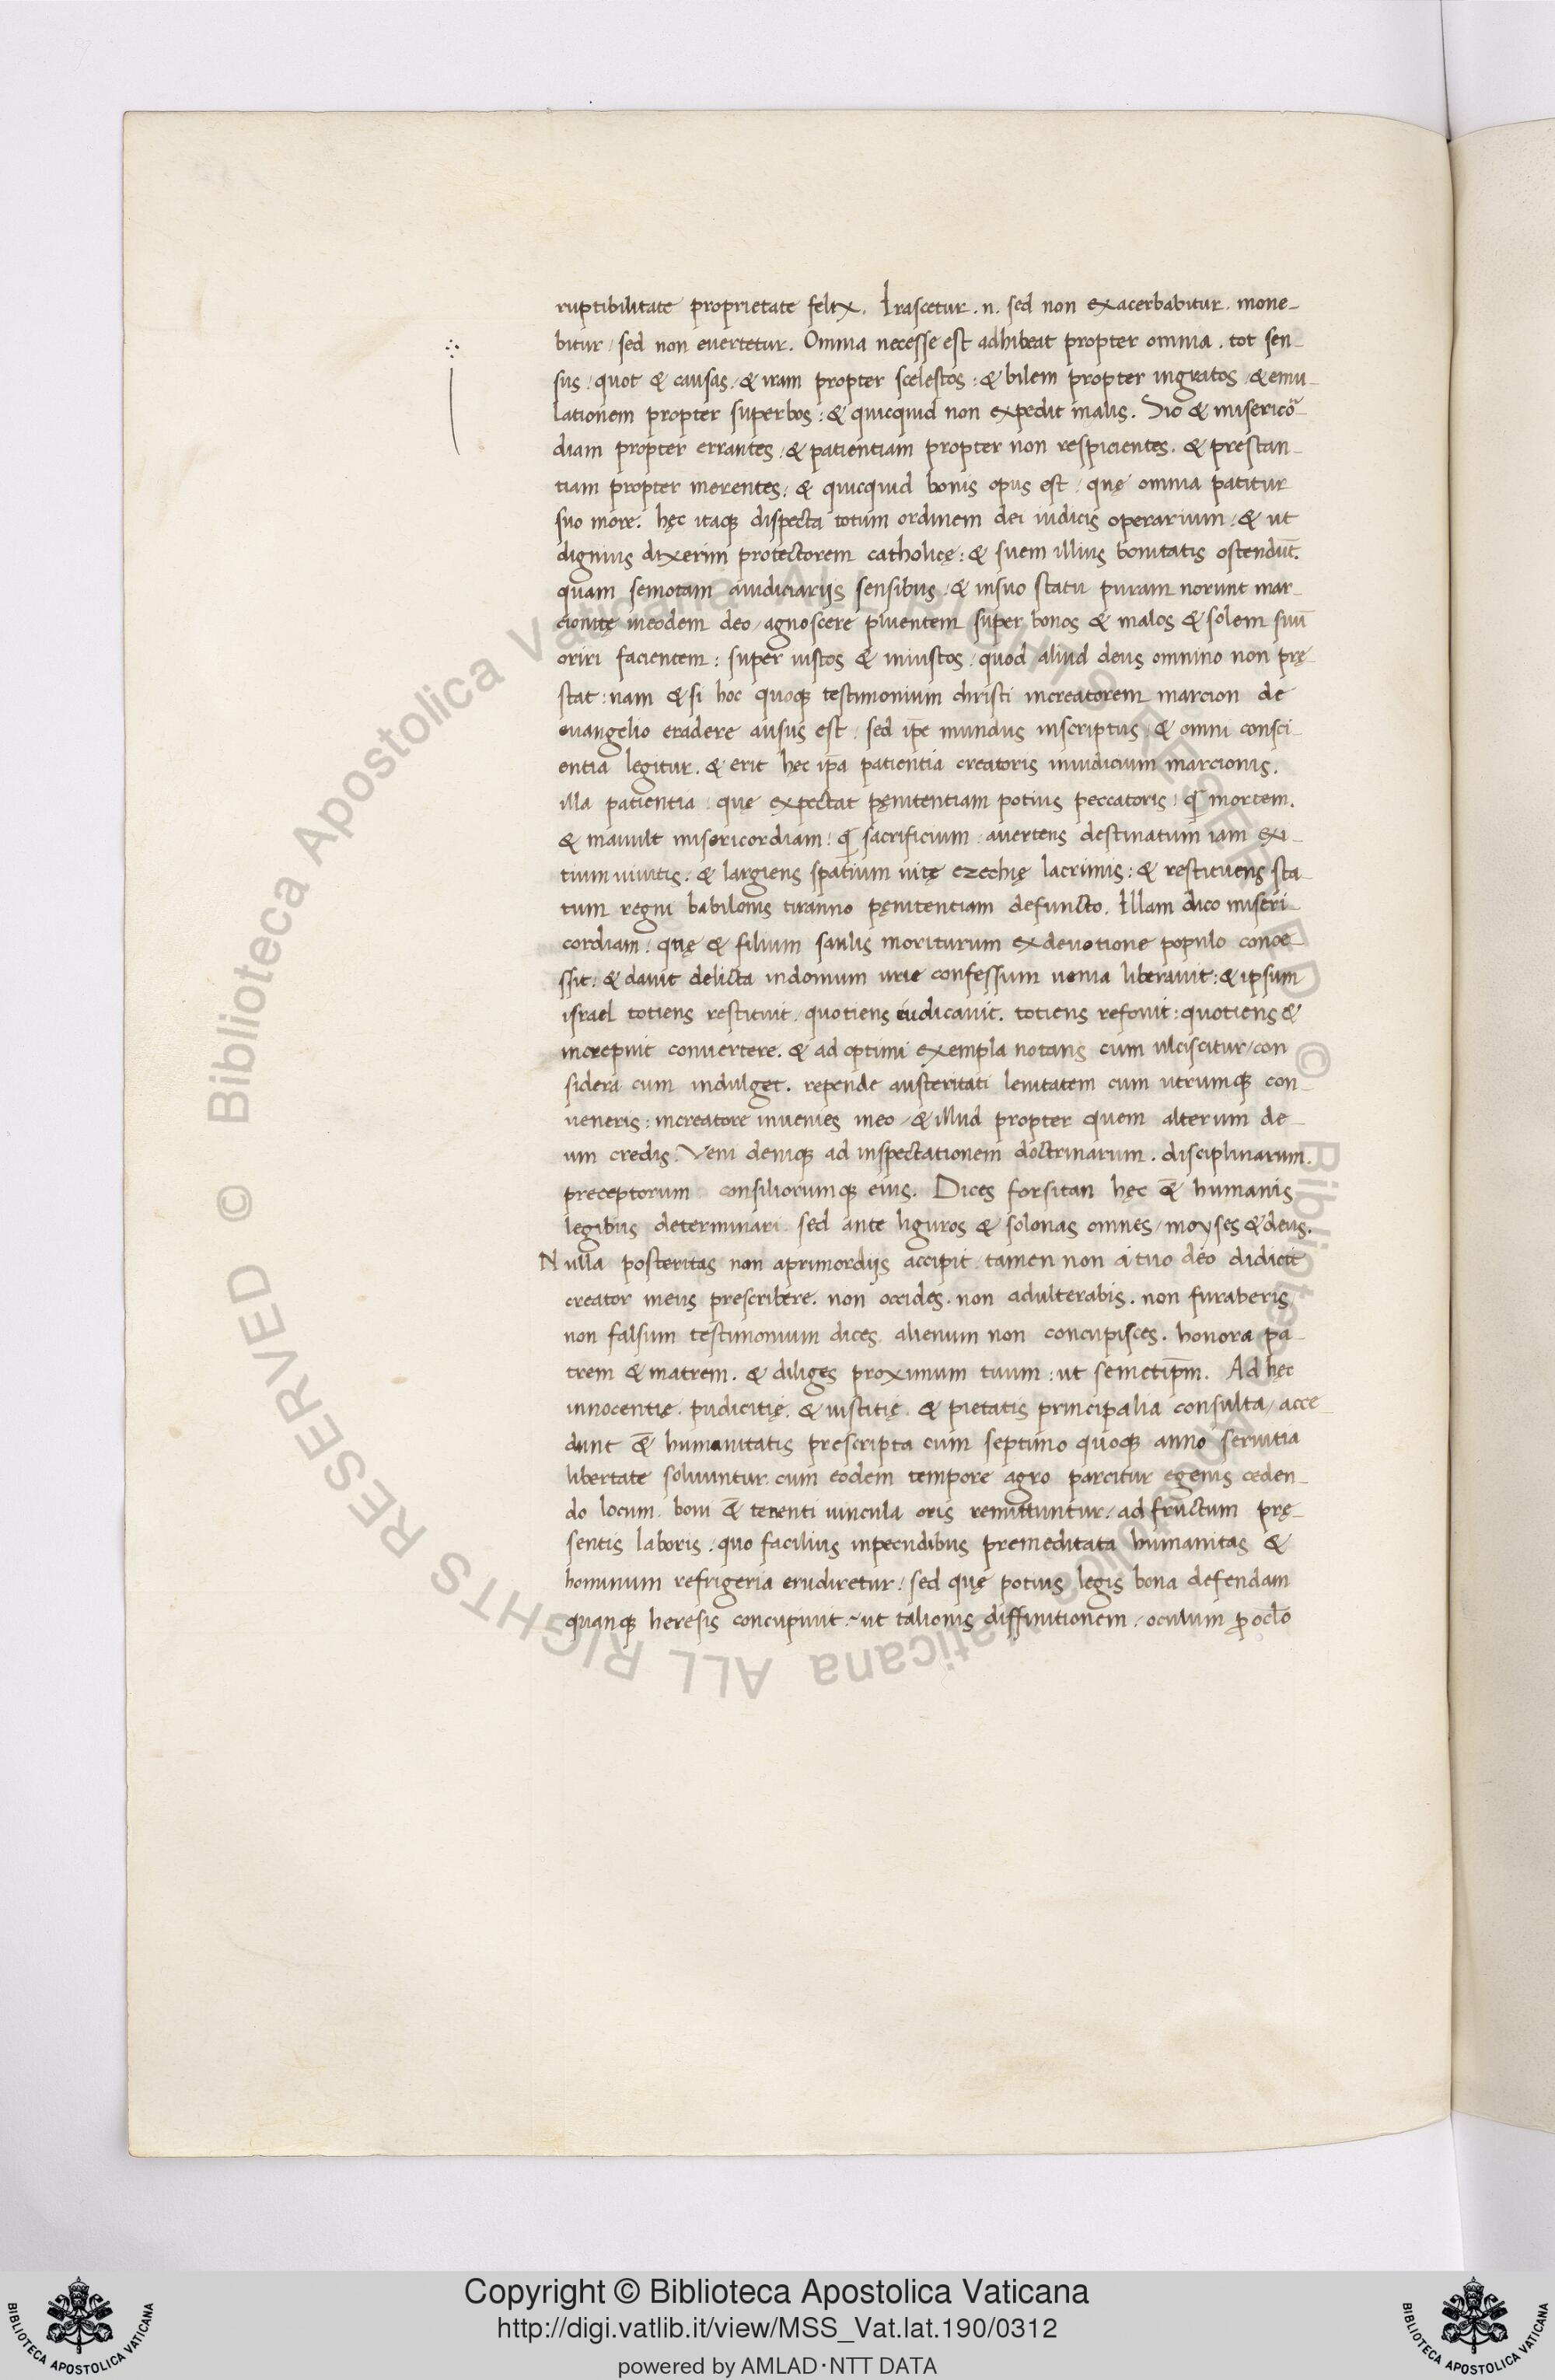 ruptibilitate proprietate felix. Irascetur .n. sed non exacerbabitur. mone-
bitur / sed non euertetur. Omnia necesse est adhibeat propter omnia . tot sen-
sus / quot & causas / & iram propter scelestos : & bilem propter ingratos / & emu-
lationem propter superbos : & quicquid non expedit malis. Sic & misericor-
diam propter errantes / & patientiam propter non respicientes. & prestan-
tiam propter merentes / & quicquid bonis opus est / quę omnia patitur
suo more. hęc itaq; dispecta totum ordinem dei iudicis operarium / & ut
dignius dixerim protectorem catholicę : & suem illius bonitatis ostendūt.
quam semotam auidiciarijs sensibus / & insuo statu puram norunt mar-
cionitę ineodem deo / agnoscere pluentem super bonos & malos & solem suū
oriri facientem : super iustos & iniustos / quod aliud deus omnino non prę-
stat : nam & si hoc quoq; testimonium christi increatorem marcion de
euangelio eradere ausus est / sed ip̄e mundus inscriptus / & omni consci-
entia legitur. & erit hęc ip̄a patientia creatoris iniudicium marcionis.
illa patientia / que expectat pęnitentiam potius peccatoris / q̄ mortem.
& mauult misericordiam / q̄ sacrificium / auertens destinatum iam exi-
tium niuitis. & largiens spatium uitę ezechię lacrimis : & restituens sta-
tum regni babilonis tiranno pęnitentiam defuncto. Illam dico miseri-
cordiam / quę & filium saulis moriturum exdeuotione populo conce-
ssit : & dauit delicta indomum urie confessum uenia liberauit : & ipsum
israel totiens restituit / quotiens iudicauit. totiens refouit : quotiens &
increpuit conuertere. & ad optimi exempla notans cum ulciscitur / con
sidera cum indulget . repende austeritati lenitatem cum utrumq; con-
ueneris : increatore inuenies meo / & illud propter quem alterum de-
um credis. Veni deniq; ad inspectationem doctrinarum . disciplinarum.
preceptorum consiliorumq; eius. Dices forsitan hęc &̄ humanis
legibus determinari . sed ante liguros & solonas omnes / moyses & deus.
Nulla posteritas non aprimordijs accipit / tamen non a tuo deo didicit
creator meus prescribere. non occides . non adulterabis . non furaberis
non falsum testimonium dices / alienum non concupisces . honora pa-
trem & matrem . & diliges proximum tuum : ut semetip̄m. Ad hęc
innocentię . pudicitię . & iustitię . & pietatis principalia consulta / acce-
dunt &̄ humanitatis prescripta cum septimo quoq; anno seruitia
libertate soluuntur. cum eodem tempore agro parcitur egenis ceden-
do locum. boui &̄ terenti uincula oris remittuntur / ad fructum prę-
sentis laboris . quo facilius inpecudibus premeditata humanitas &
hominum refrigeria erudiretur / sed quę potius legis bona defendam
quanq; heresis concupiuit / ut talionis diffinitionem / oculum ꝓ ocl̄o
© Biblioteca Apostolica Vaticana ALL RIGHTS RESERVED © Biblioteca Apostolica Vaticana ALL RIGHTS RESERVED
Copyright © Biblioteca Apostolica Vaticana
http://digi.vatlib.it/view/MSS_Vat.lat.190/0312
powered by AMLAD·NTT DATA
BIBLIOTECA APOSTOLICA VATICANA
BIBLIOTECA APOSTOLICA VATICANA